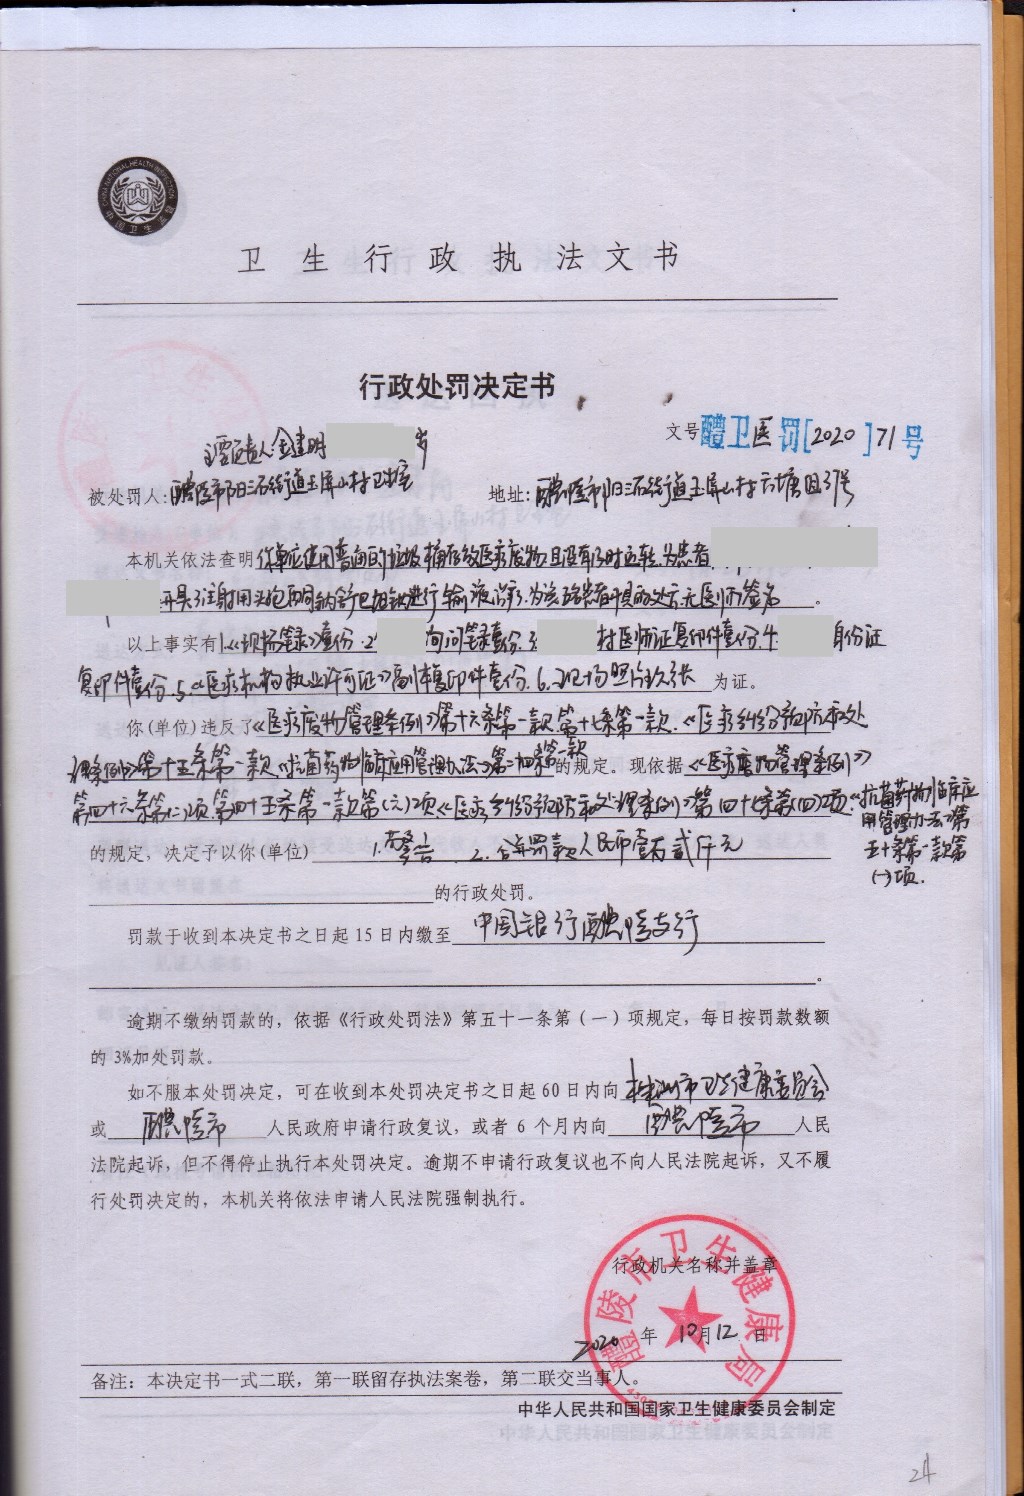 CHINA NATIONAL HEALTH INSPECTION
中国卫生监督
卫生行政执法文书
行政处罚决定书
文号 醴卫医罚[2020]71号
主要负责人:金建明
被处罚人:醴陵市阳三石街道玉屏山村卫生室 地址:醴陵市阳三石街道玉屏山村六塘组31号
本机关依法查明 你单位使用普通的垃圾桶存放医疗废物且没有及时运转,为患者
开具了注射用头孢西同钠舒巴坦钠进行输液治疗,为该患者开具的处方无医师签名。
以上事实有1.《现场笔录》壹份.2. 询问笔录壹份.3. 村医师证复印件壹份.4. 身份证
复印件壹份.5.《医疗机构执业许可证》副本复印件壹份.6.现场照片 张 为证。
你(单位)违反了《医疗废物管理条例》第十六条第一款.第十七条第一款.《医疗纠纷预防和处
理条例》第十五条第一款.《抗菌药物临床应用管理办法》第二十四条第一款的规定。现依据《医疗废物管理条例》
第四十六条第(二)项.第四十五条第一款第(六)项《医疗纠纷预防和处理条例》第四十七条第(四)项.《抗菌药物临床应
用管理办法》第
五十条第一款第
(一)项.
的规定,决定予以你(单位) 1.警告 2.合并罚款人民币壹万贰仟元
的行政处罚。
罚款于收到本决定书之日起15日内缴至中国银行醴陵支行
。
逾期不缴纳罚款的,依据《行政处罚法》第五十一条第(一)项规定,每日按罚款数额
的3%加处罚款。
如不服本处罚决定,可在收到本处罚决定书之日起60日内向株洲市卫生健康委员会
或 醴陵市 人民政府申请行政复议,或者6个月内向 醴陵市 人民
法院起诉,但不得停止执行本处罚决定。逾期不申请行政复议也不向人民法院起诉,又不履
行处罚决定的,本机关将依法申请人民法院强制执行。
醴陵市卫生健康局
行政机关名称并盖章
2020年10月12日
备注:本决定书一式二联,第一联留存执法案卷,第二联交当事人。
中华人民共和国国家卫生健康委员会制定
24